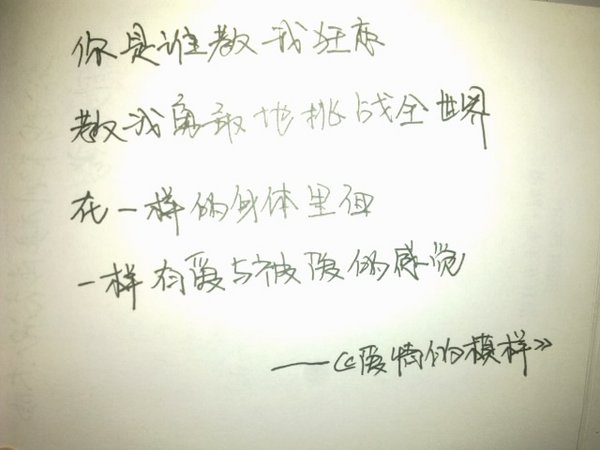 你是谁教我狂恋
教我勇敢地挑战全世界
在一样的身体里但
一样有爱与被爱的感觉
——《爱情的模样》